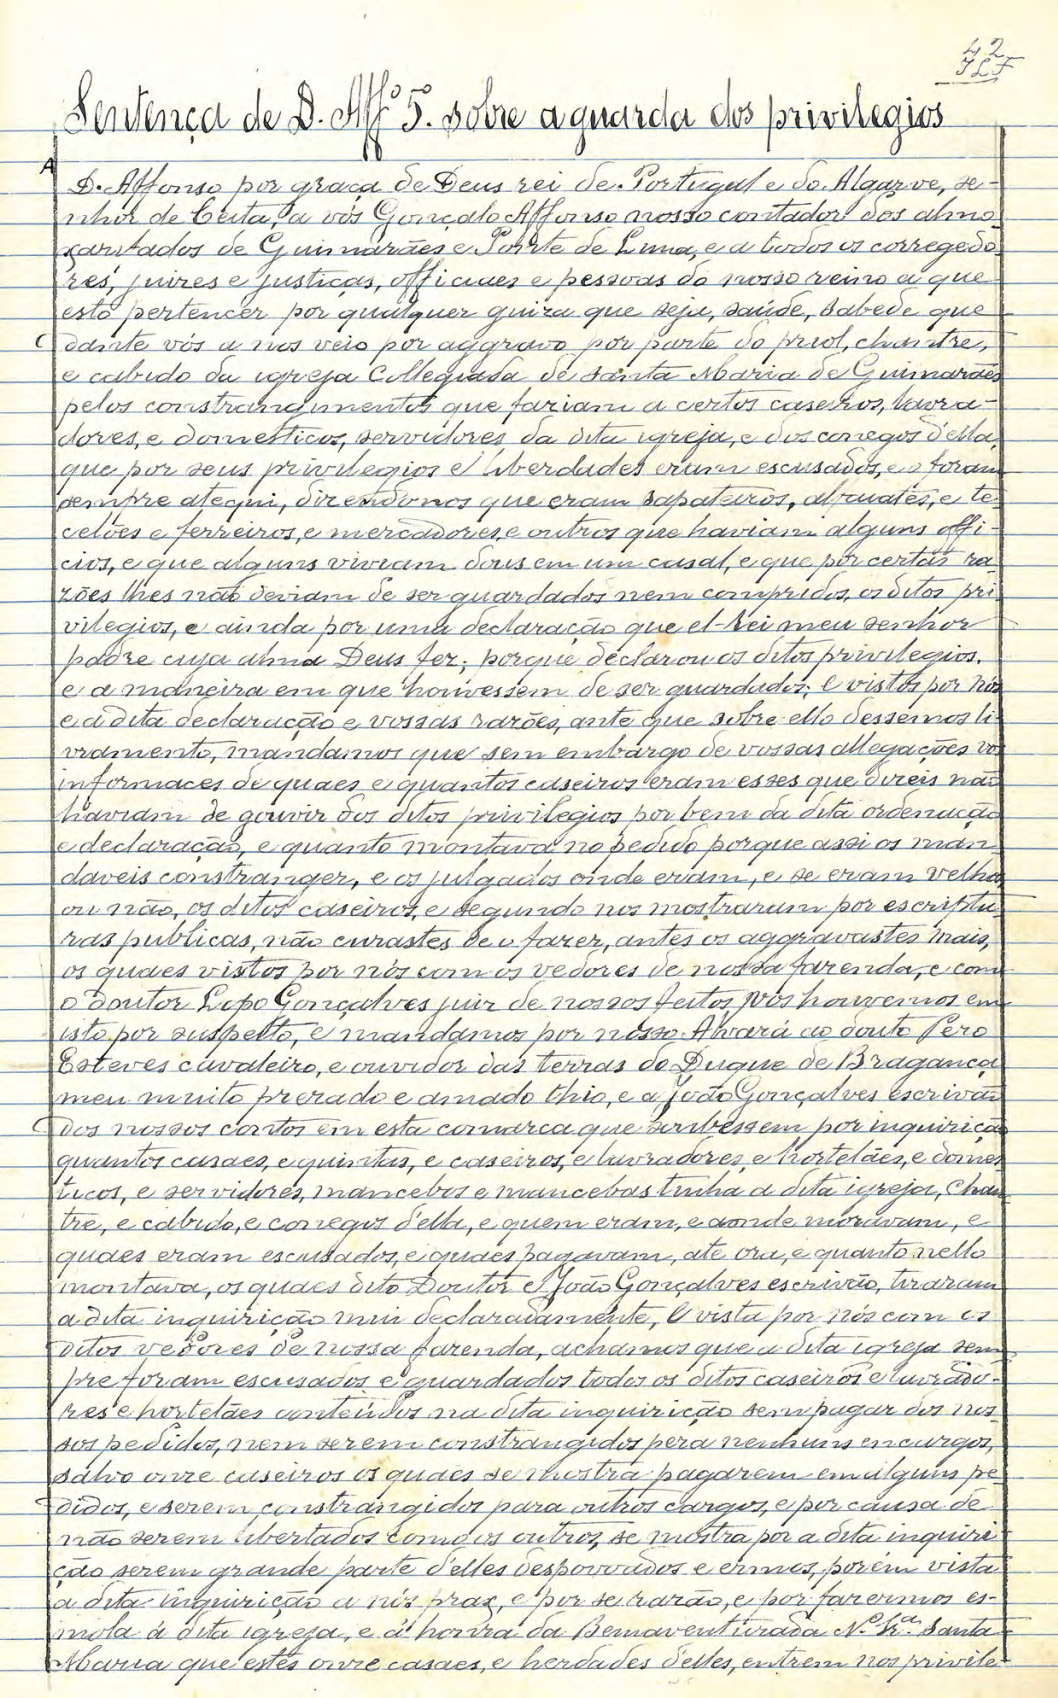 42
Sentença de D. Affº 5º. sobre a guarda dos privilegios
A
D. Affonso por graça de Deus rei de Portugal e do Algarve, se-
nhor de Ceita, a vós Gonçalo Affonso nosso contador dos almo
xarifados de Guimarães e Ponte de Lima, e a todos os corregedo
res, juizes e justiças, officiaes e pessoas do nosso reino a que
esto pertencer por qualquer guiza que seja, saúde, sabede que
dante vós a nos veio por aggravo por parte do priol, chantre,
e cabido da igreja Collegiada de Santa Maria de Guimarães
pelos constrangimentos que fariam a certos caseiros, lavra-
dores, e domesticos, servidores da dita igreja, e dos conegos d'ella,
que por seus privilegios e liberdades eram escusados, e o foram
sempre atequi, dizendo nos que eram sapateiros, alfaiates, e te
celões e ferreiros, e mercadores, e outros que haviam alguns offi-
cios, e que alguns viviam dous em um casal, e que por certas ra
zões lhes não deviam de ser guardados nem compridos, os ditos pri
vilegios, e ainda por uma declaração que el-Rei meu senhor
padre cuja alma Deus fez, porque declarou os ditos privilegios,
e a maneira em que houvessem de ser guardados; e vistos por nós
e a dita declaração e vossas razões, ante que sobre ello dessemos li
vramento, mandamos que sem embargo de vossas allegações vos
informaces de quaes e quantos caseiros eram esses que dizeis não
haviam de gouvir dos ditos privilegios por bem da dita ordenação
e declaração, e quanto montava no pedido porque assi os man
daveis constranger, e os julgados onde eram, e se eram velhos
ou não, os ditos caseiros, e segundo nos mostraram por escriptu
ras publicas, não curastes de o fazer, antes os aggravastes mais,
os quaes vistos por nós com os vedores de nossa fazenda, e com
o doutor Lopo Gonçalves juiz de nossos feitos vós houvemos em
isto por suspeito, e mandamos por nosso Alvará ao douto Pero
Esteves cavaleiro, e ouvidor das terras do Duque de Bragança
meu muito prezado e amado thio, e a João Gonçalves escrivão
dos nossos contos em esta comarca que soubessem por inquirição
quantos casaes, e quintas, e caseiros, e lavradores, e hortelães, e domes
ticos, e servidores, mancebos e mancebas tinha a dita igreja, Chan
tre, e cabido, e conegos d'ella, e quem eram, e aonde moravam, e
quaes eram escusados, e quaes pagavam, até ora, e quanto nello
montava, os quaes dito Doutor e João Gonçalves escrivão, tiraram
a dita inquirição mui declaradamente, e vista por nós com os
ditos vedores de nossa fazenda, achamos que a dita igreja sem
pre foram escusados e guardados todos os ditos caseiros e lavrado-
res e hortelães conteudos na dita inquirição sem pagar dos nos
sos pedidos, nem serem constrangidos pera nenhuns encargos,
salvo onze caseiros os quaes se mostra pagarem em alguns pe
didos, e serem constrangidos para outros cargos, e por causa de
não serem libertados como os outros, se mostra por a dita inquiri
ção serem grande parte d'elles despovoados e ermos, porém vista
a dita inquirição a nós praz, e por se razão, e por fazermos es-
mola á dita igreja, e á honra da Bemaventurada N.ª Sr.ª Santa
Maria que estes onze casaes, e herdades d'elles, entrem nos privile-